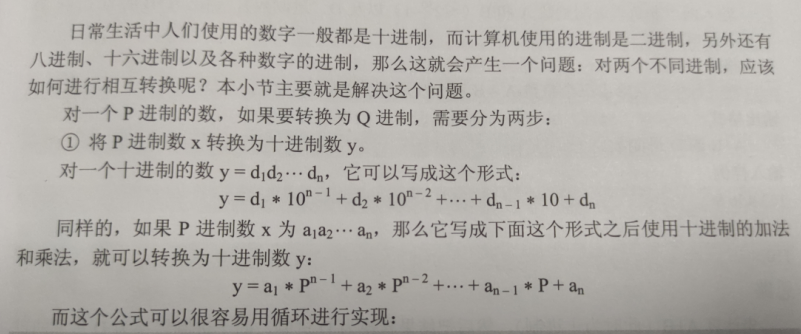 日常生活中人们使用的数字一般都是十进制，而计算机使用的进制是二进制，另外还有
八进制、十六进制以及各种数字的进制，那么这就会产生一个问题：对两个不同进制，应该
如何进行相互转换呢？本小节主要就是解决这个问题。
对一个 P 进制的数，如果要转换为 Q 进制，需要分为两步：
① 将 P 进制数 x 转换为十进制数 y。
对一个十进制的数 y = d₁d₂⋯dₙ，它可以写成这个形式：
y = d₁ * 10ⁿ⁻¹ + d₂ * 10ⁿ⁻² +⋯+ dₙ₋₁ * 10 + dₙ
同样的，如果 P 进制数 x 为 a₁a₂⋯aₙ，那么它写成下面这个形式之后使用十进制的加法
和乘法，就可以转换为十进制数 y：
y = a₁ * Pⁿ⁻¹ + a₂ * Pⁿ⁻² +⋯+ aₙ₋₁ * P + aₙ
而这个公式可以很容易用循环进行实现：